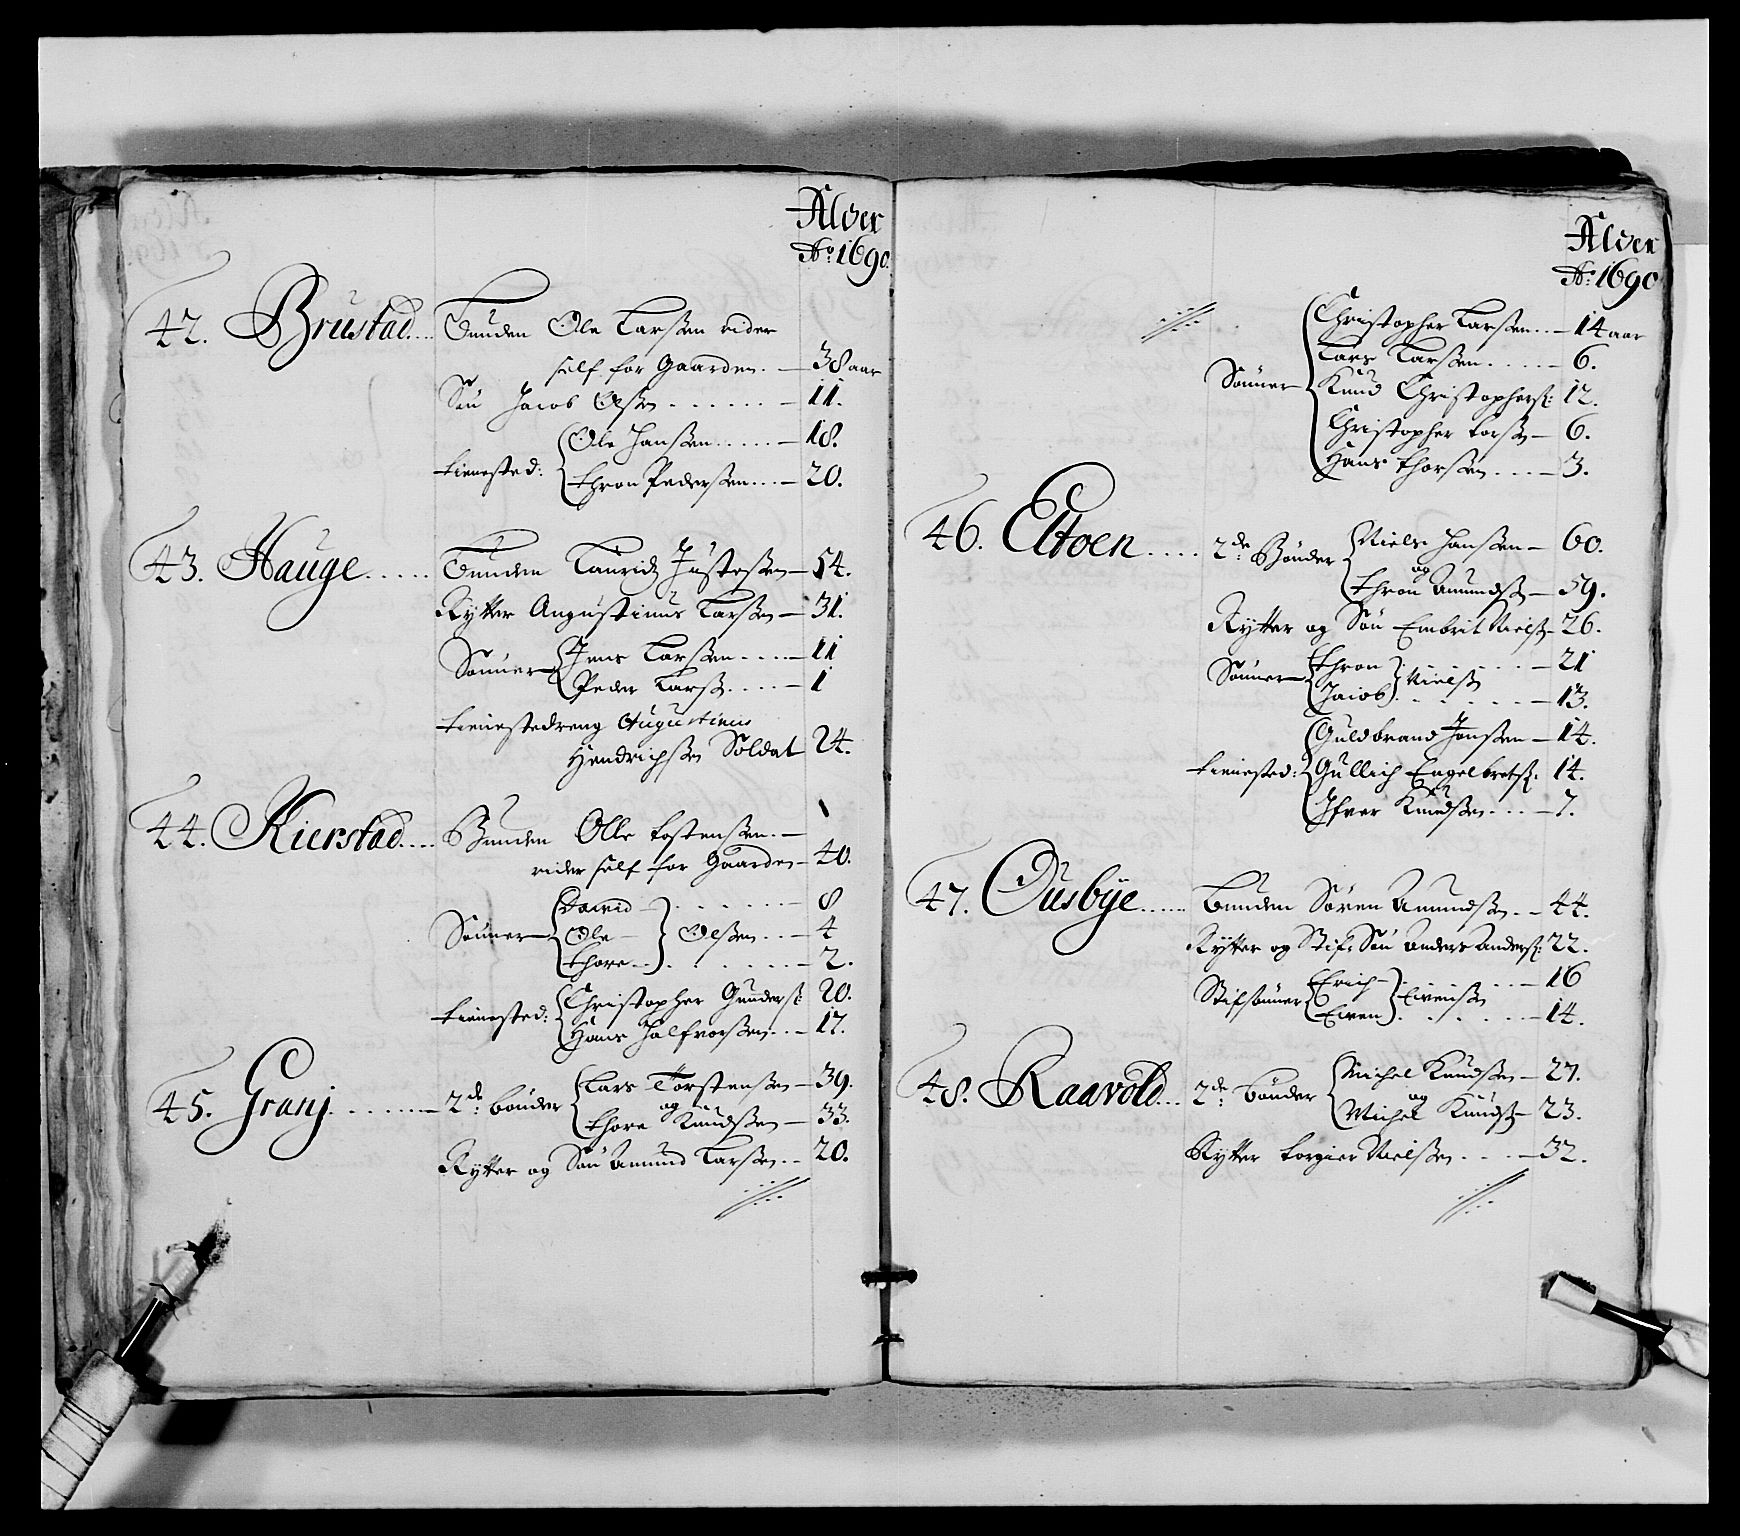 Alder
Ao. 1690.
42. Brustad.... Bunden Ole Larssen rider
self for Gaarden. — 38 aar
Søn Jacob Olssen ...... — 11.
tienisted: Ole Hanssen..... — 18.
thron Pederssen... — 20.
43. Hauge...... Bunden Lauridz Justessen — 54.
Rytter Augustinus Larssen — 31.
Sønner Jens Larssen.... — 11
Peder Larss..... — 1
tienistedreng Augustinus
Hendrichssen Soldat 24.
44. Kierstad.... Bunden Olle tostenssen. —
rider self for Gaarden — 40.
Sønner Dawid — ...... — 8
Ole — Olssen... — 4
thore — ...... — 2.
tienisted: Christopher Gunderss: 20.
Hans Halfvorssen... — 17.
45. Granj......... 2de. bønder Lars Torstenssen — 39.
og
thore Knudssen — 33.
Rytter og Søn Amund Larssen.. — 20.
Alder
Ao. 1690
Sønner Christopher Larssen... — 14 aar
Lars Larssen..... — 6.
Knud Christopherss: 12.
Christopher torss — 6.
Hans thorssen.... — 3.
46. Eltoen..... 2de. Bønder Niels Hanssen — 60.
og
thron Amundss — 59.
Rytter og Søn Embrit Nielss — 26.
Sønner thron ...... — 21
Jacob Nielss ...... — 13.
Guldbrand Jonssen — 14.
tienisted: Gullich Engelbretss: 14.
Ifver Knudssen.... — 7.
47. Ousbye...... Bunden Søren Amundssen.. — 44.
Rytter og Stif. Søn Anders Anderss: 22.
Stifsønner Erich — ...... — 16
Ewen Ewenssen ...... — 14.
48. Raavold... 2de. bønder Michel Knudssen — 27.
og
Michel Knudss — 23.
Rytter torgier Nielssen.... — 32.